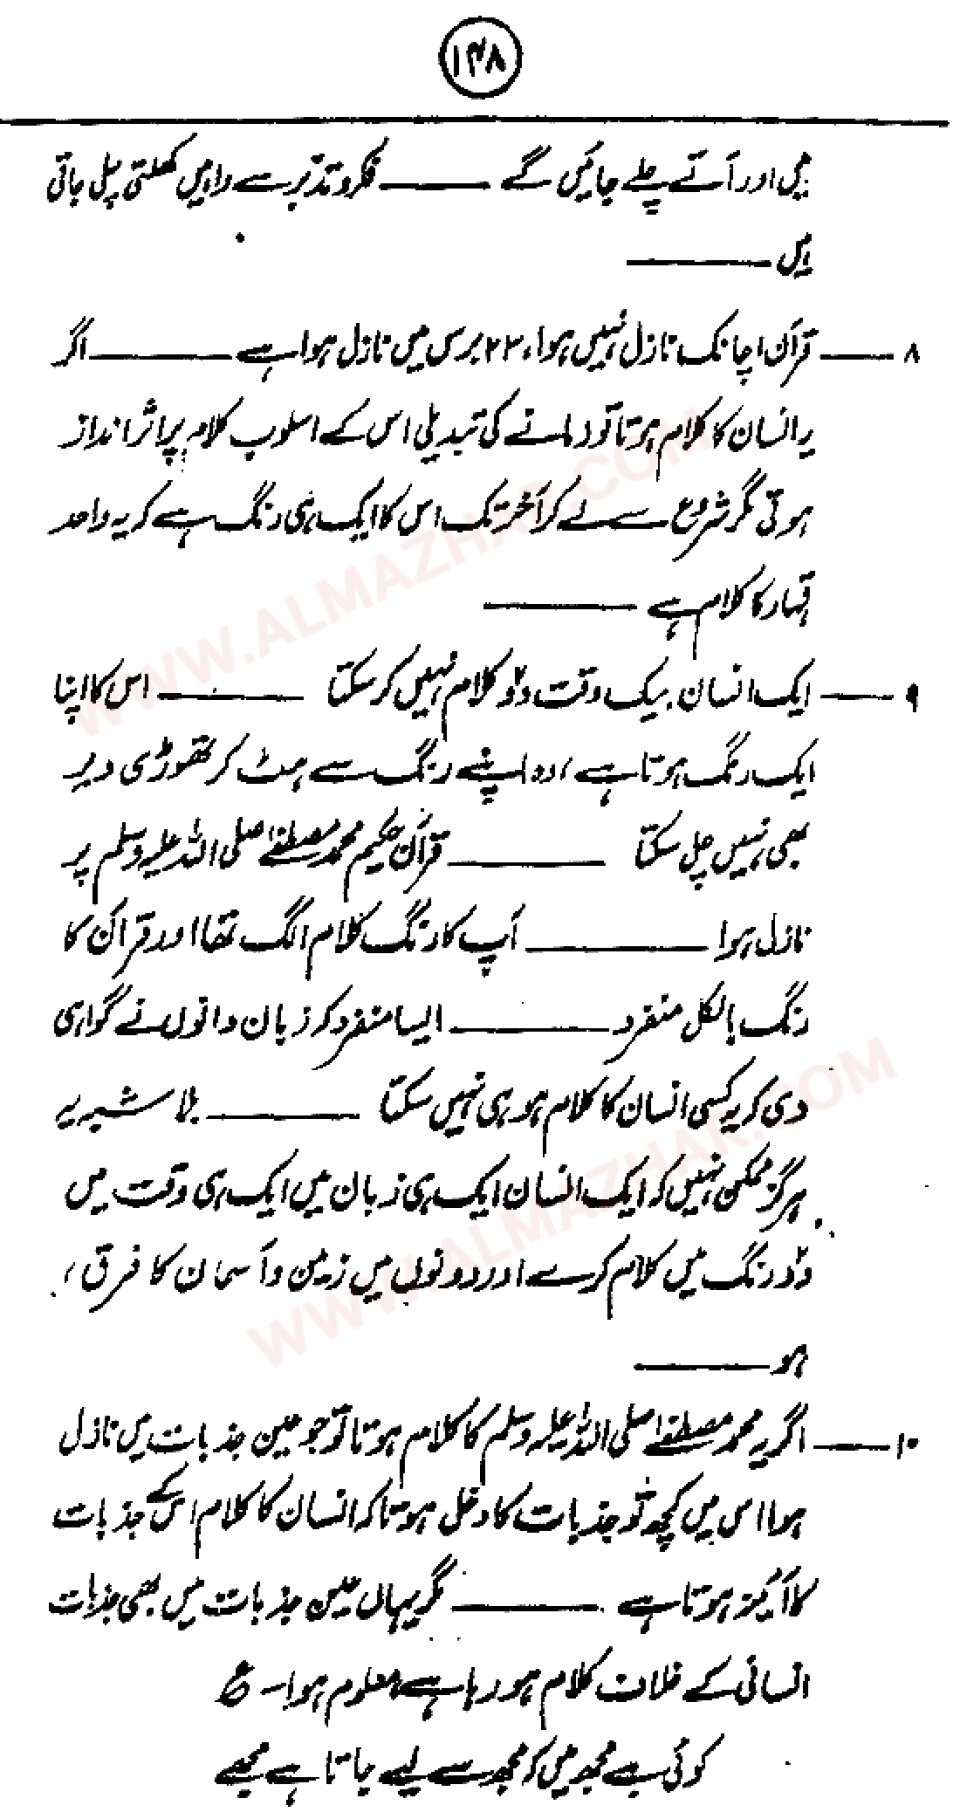 ۱۴۸
ہیں اور آتے چلے جائیں گے ــــــ فکر و تدبر سے راہیں کھلتی چلی جاتی
ہیں ــــــ
۸ ــــــ قرآن اچانک نازل نہیں ہوا، ۲۳ برس میں نازل ہوا ہے ــــــ اگر
یہ انسان کا کلام ہوتا تو زمانے کی تبدیلی اس کے اسلوب کلام پر اثر انداز
ہوتی مگر شروع سے لے کر آخر تک اس کا ایک ہی رنگ ہے کہ یہ واحد
قہار کا کلام ہے ــــــ
۹ ــــــ ایک انسان بیک وقت دو کلام نہیں کر سکتا ــــــ اس کا اپنا
ایک رنگ ہوتا ہے، وہ اپنے رنگ سے ہٹ کر تھوڑی دیر
بھی نہیں چل سکتا ــــــ قرآن حکیم محمد مصطفےٰ صلی اللہ علیہ وسلم پر
نازل ہوا ــــــ آپ کا رنگ کلام الگ تھا اور قرآن کا
رنگ بالکل منفرد ــــــ ایسا منفرد کہ زبان دانوں نے گواہی
دی کہ یہ کسی انسان کا کلام ہو ہی نہیں سکتا ــــــ بلا شبہ یہ
ہرگز ممکن نہیں کہ ایک انسان ایک ہی زبان میں ایک ہی وقت میں
دو رنگ میں کلام کرے اور دونوں میں زمین و آسمان کا فرق،
ہو ــــــ
۱۰ ــــــ اگر یہ محمد مصطفےٰ صلی اللہ علیہ وسلم کا کلام ہوتا تو جو عین جذبات میں نازل
ہوا اس میں کچھ تو جذبات کا دخل ہوتا کہ انسان کا کلام اس کے جذبات
کا آئینہ ہوتا ہے ــــــ مگر یہاں عین جذبات میں بھی جذبات
انسانی کے خلاف کلام ہو رہا ہے، معلوم ہوا۔ ع
کوئی ہے مجھ میں کہ مجھ سے لیے جاتا ہے مجھے
WWW.ALMAZHAR.COM
WWW.ALMAZHAR.COM